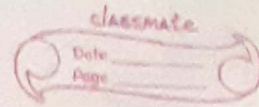 classmate
Date
Page